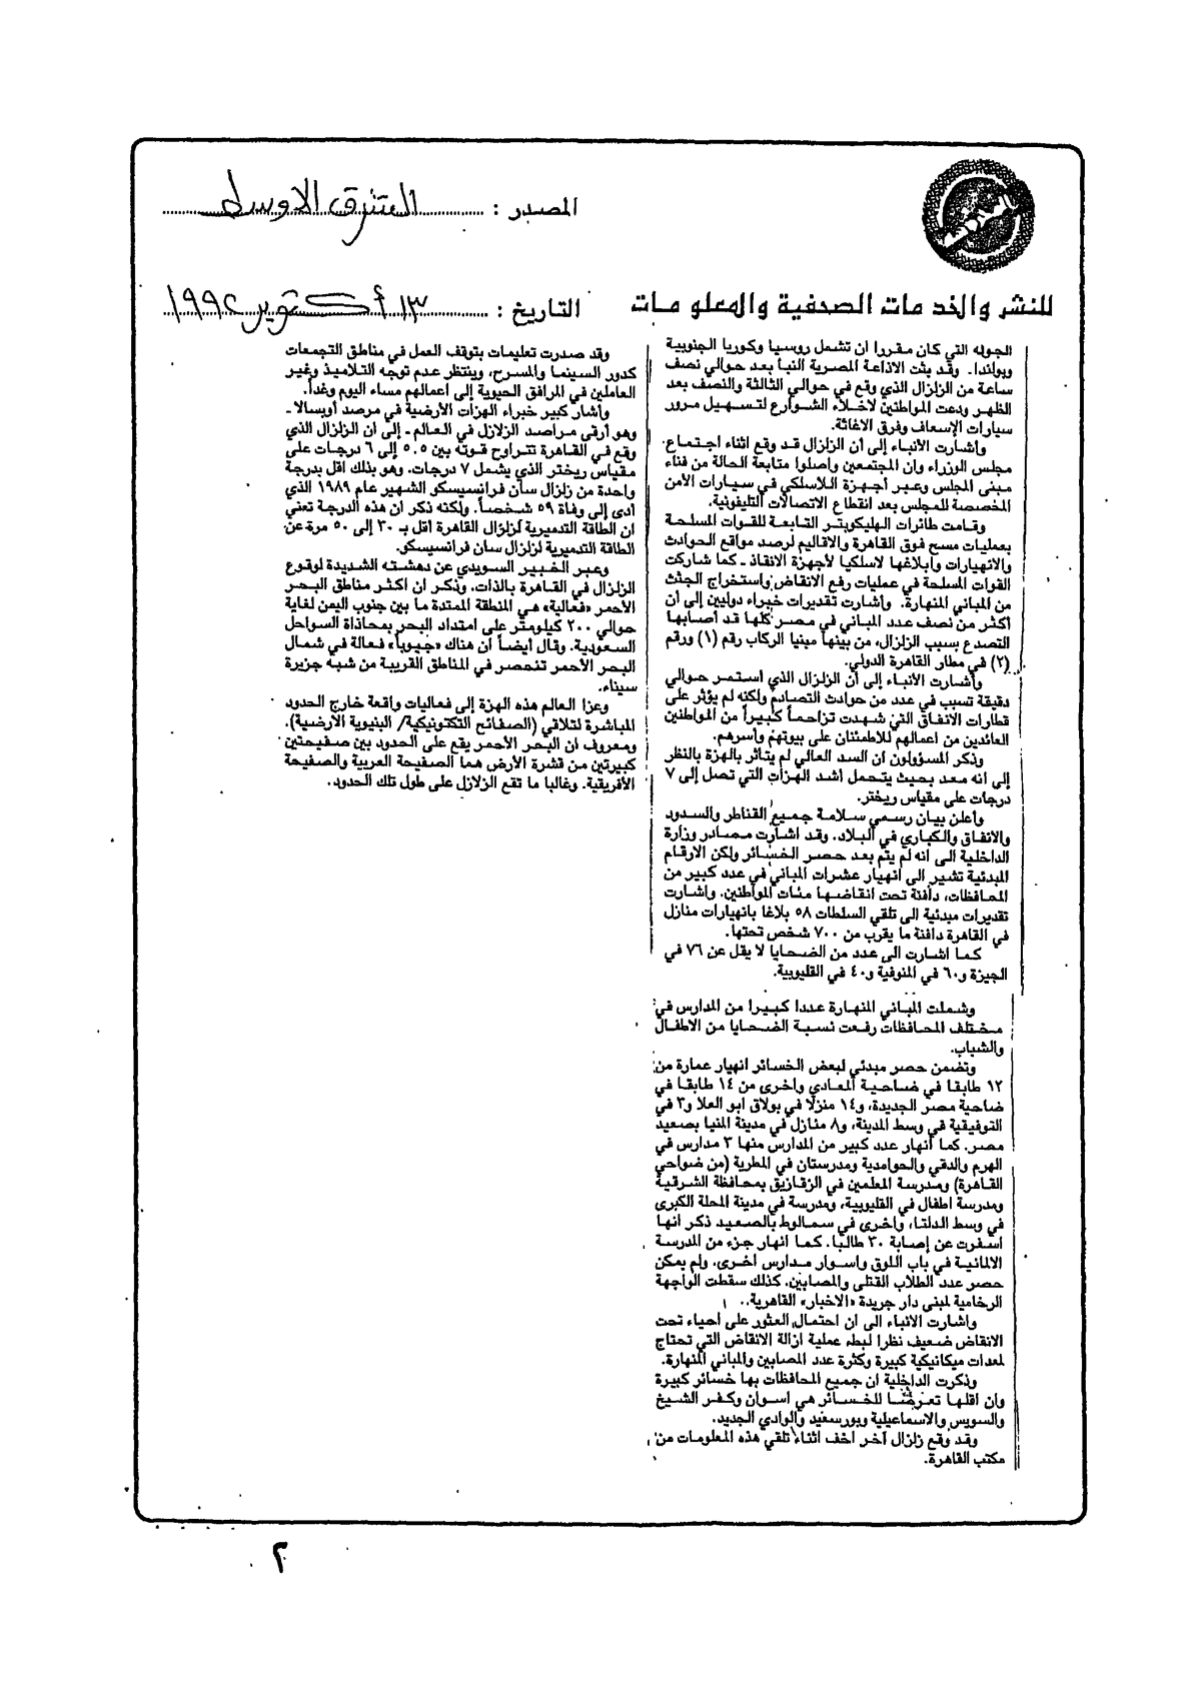 المصدر : الشرق الاوسط
للنشر والخدمات الصحفية والمعلومات
التاريخ : ١٣ أكتوبر ١٩٩٢
الجولة التي كان مقررا ان تشمل روسيا وكوريا الجنوبية
وبولندا. وقد بثت الاذاعة المصرية النبأ بعد حوالي نصف
ساعة من الزلزال الذي وقع في حوالي الثالثة والنصف بعد
الظهر ودعت المواطنين لاخلاء الشوارع لتسهيل مرور
سيارات الإسعاف وفرق الاغاثة.
وأشارت الأنباء إلى أن الزلزال قد وقع اثناء اجتماع
مجلس الوزراء وان المجتمعين واصلوا متابعة الحالة من فناء
مبنى المجلس وعبر أجهزة اللاسلكي في سيارات الأمن
المخصصة للمجلس بعد انقطاع الاتصالات التليفونية.
وقامت طائرات الهليكوبتر التابعة للقوات المسلحة
بعمليات مسح فوق القاهرة والاقاليم لرصد مواقع الحوادث
والانهيارات وابلاغها لاسلكيا لأجهزة الانقاذ ـ كما شاركت
القوات المسلحة في عمليات رفع الانقاض واستخراج الجثث
من المباني المنهارة. وأشارت تقديرات خبراء دوليين إلى أن
أكثر من نصف عدد المباني في مصر كلها قد أصابها
التصدع بسبب الزلزال، من بينها مبنيا الركاب رقم (١) ورقم
(٢) في مطار القاهرة الدولي.
وأشارت الأنباء إلى أن الزلزال الذي استمر حوالي
دقيقة تسبب في عدد من حوادث التصادم ولكنه لم يؤثر على
قطارات الانفاق التي شهدت تزاحماً كبيراً من المواطنين
العائدين من اعمالهم للاطمئنان على بيوتهم وأسرهم.
وذكر المسؤولون ان السد العالي لم يتاثر بالهزة بالنظر
إلى انه معد بحيث يتحمل أشد الهزات التي تصل إلى ٧
درجات على مقياس ريختر.
وأعلن بيان رسمي سلامة جميع القناطر والسدود
والانفاق والكباري في البلاد. وقد اشارت مصادر وزارة
الداخلية الى انه لم يتم بعد حصر الخسائر ولكن الارقام
المبدئية تشير الى انهيار عشرات المباني في عدد كبير من
المحافظات، دافنة تحت انقاضها مئات المواطنين. واشارت
تقديرات مبدئية الى تلقي السلطات ٥٨ بلاغا بانهيارات منازل
في القاهرة دافنة ما يقرب من ٧٠٠ شخص تحتها.
كما اشارت الى عدد من الضحايا لا يقل عن ٧٦ في
الجيزة و٦٠ في المنوفية و٤٠ في القليوبية.
وشملت المباني المنهارة عددا كبيرا من المدارس في
مختلف المحافظات رفعت نسبة الضحايا من الاطفال
والشباب.
وتضمن حصر مبدئي لبعض الخسائر انهيار عمارة من
١٢ طابقا في ضاحية المعادي واخرى من ١٤ طابقا في
ضاحية مصر الجديدة، و١٤ منزلا في بولاق ابو العلا و٣ في
التوفيقية في وسط المدينة، و٨ منازل في مدينة المنيا بصعيد
مصر. كما انهار عدد كبير من المدارس منها ٣ مدارس في
الهرم والدقي والحوامدية ومدرستان في المطرية (من ضواحي
القاهرة) ومدرسة المعلمين في الزقازيق بمحافظة الشرقية
ومدرسة اطفال في القليوبية، ومدرسة في مدينة المحلة الكبرى
في وسط الدلتا، واخرى في سمالوط بالصعيد ذكر انها
اسفرت عن إصابة ٣٠ طالبا. كما انهار جزء من المدرسة
الالمانية في باب اللوق واسوار مدارس اخرى. ولم يمكن
حصر عدد الطلاب القتلى والمصابين. كذلك سقطت الواجهة
الرخامية لمبنى دار جريدة «الاخبار» القاهرية..
واشارت الانباء الى ان احتمال العثور على احياء تحت
الانقاض ضعيف نظرا لبطء عملية ازالة الانقاض التي تحتاج
لمعدات ميكانيكية كبيرة وكثرة عدد المصابين والمباني المنهارة.
وذكرت الداخلية ان جميع المحافظات بها خسائر كبيرة
وان اقلها تعرضا للخسائر هي اسوان وكفر الشيخ
والسويس والاسماعيلية وبورسعيد والوادي الجديد.
وقد وقع زلزال آخر اخف اثناء تلقي هذه المعلومات من
مكتب القاهرة.
وقد صدرت تعليمات بتوقف العمل في مناطق التجمعات
كدور السينما والمسرح، وينتظر عدم توجه التلاميذ وغير
العاملين في المرافق الحيوية إلى اعمالهم مساء اليوم وغداً.
وأشار كبير خبراء الهزات الأرضية في مرصد أوبسالا ـ
وهو أرقى مراصد الزلازل في العالم ـ إلى أن الزلزال الذي
وقع في القاهرة تتراوح قوته بين ٥.٥ إلى ٦ درجات على
مقياس ريختر الذي يشمل ٧ درجات. وهو بذلك اقل بدرجة
واحدة من زلزال سان فرانسيسكو الشهير عام ١٩٨٩ الذي
أدى إلى وفاة ٥٩ شخصاً. ولكنه ذكر ان هذه الدرجة تعني
ان الطاقة التدميرية لزلزال القاهرة اقل بـ ٣٠ إلى ٥٠ مرة عن
الطاقة التدميرية لزلزال سان فرانسيسكو.
وعبر الخبير السويدي عن دهشته الشديدة لوقوع
الزلزال في القاهرة بالذات. وذكر ان اكثر مناطق البحر
الأحمر «فعالية» هي المنطقة الممتدة ما بين جنوب اليمن لغاية
حوالي ٢٠٠ كيلومتر على امتداد البحر بمحاذاة السواحل
السعودية. وقال أيضاً أن هناك «جيوباً» فعالة في شمال
البحر الأحمر تنحصر في المناطق القريبة من شبه جزيرة
سيناء.
وعزا العالم هذه الهزة إلى فعاليات واقعة خارج الحدود
المباشرة لتلاقي (الصفائح التكتونيكية/ البنيوية الأرضية).
ومعروف ان البحر الأحمر يقع على الحدود بين صفيحتين
كبيرتين من قشرة الأرض هما الصفيحة العربية والصفيحة
الأفريقية. وغالبا ما تقع الزلازل على طول تلك الحدود..
٢